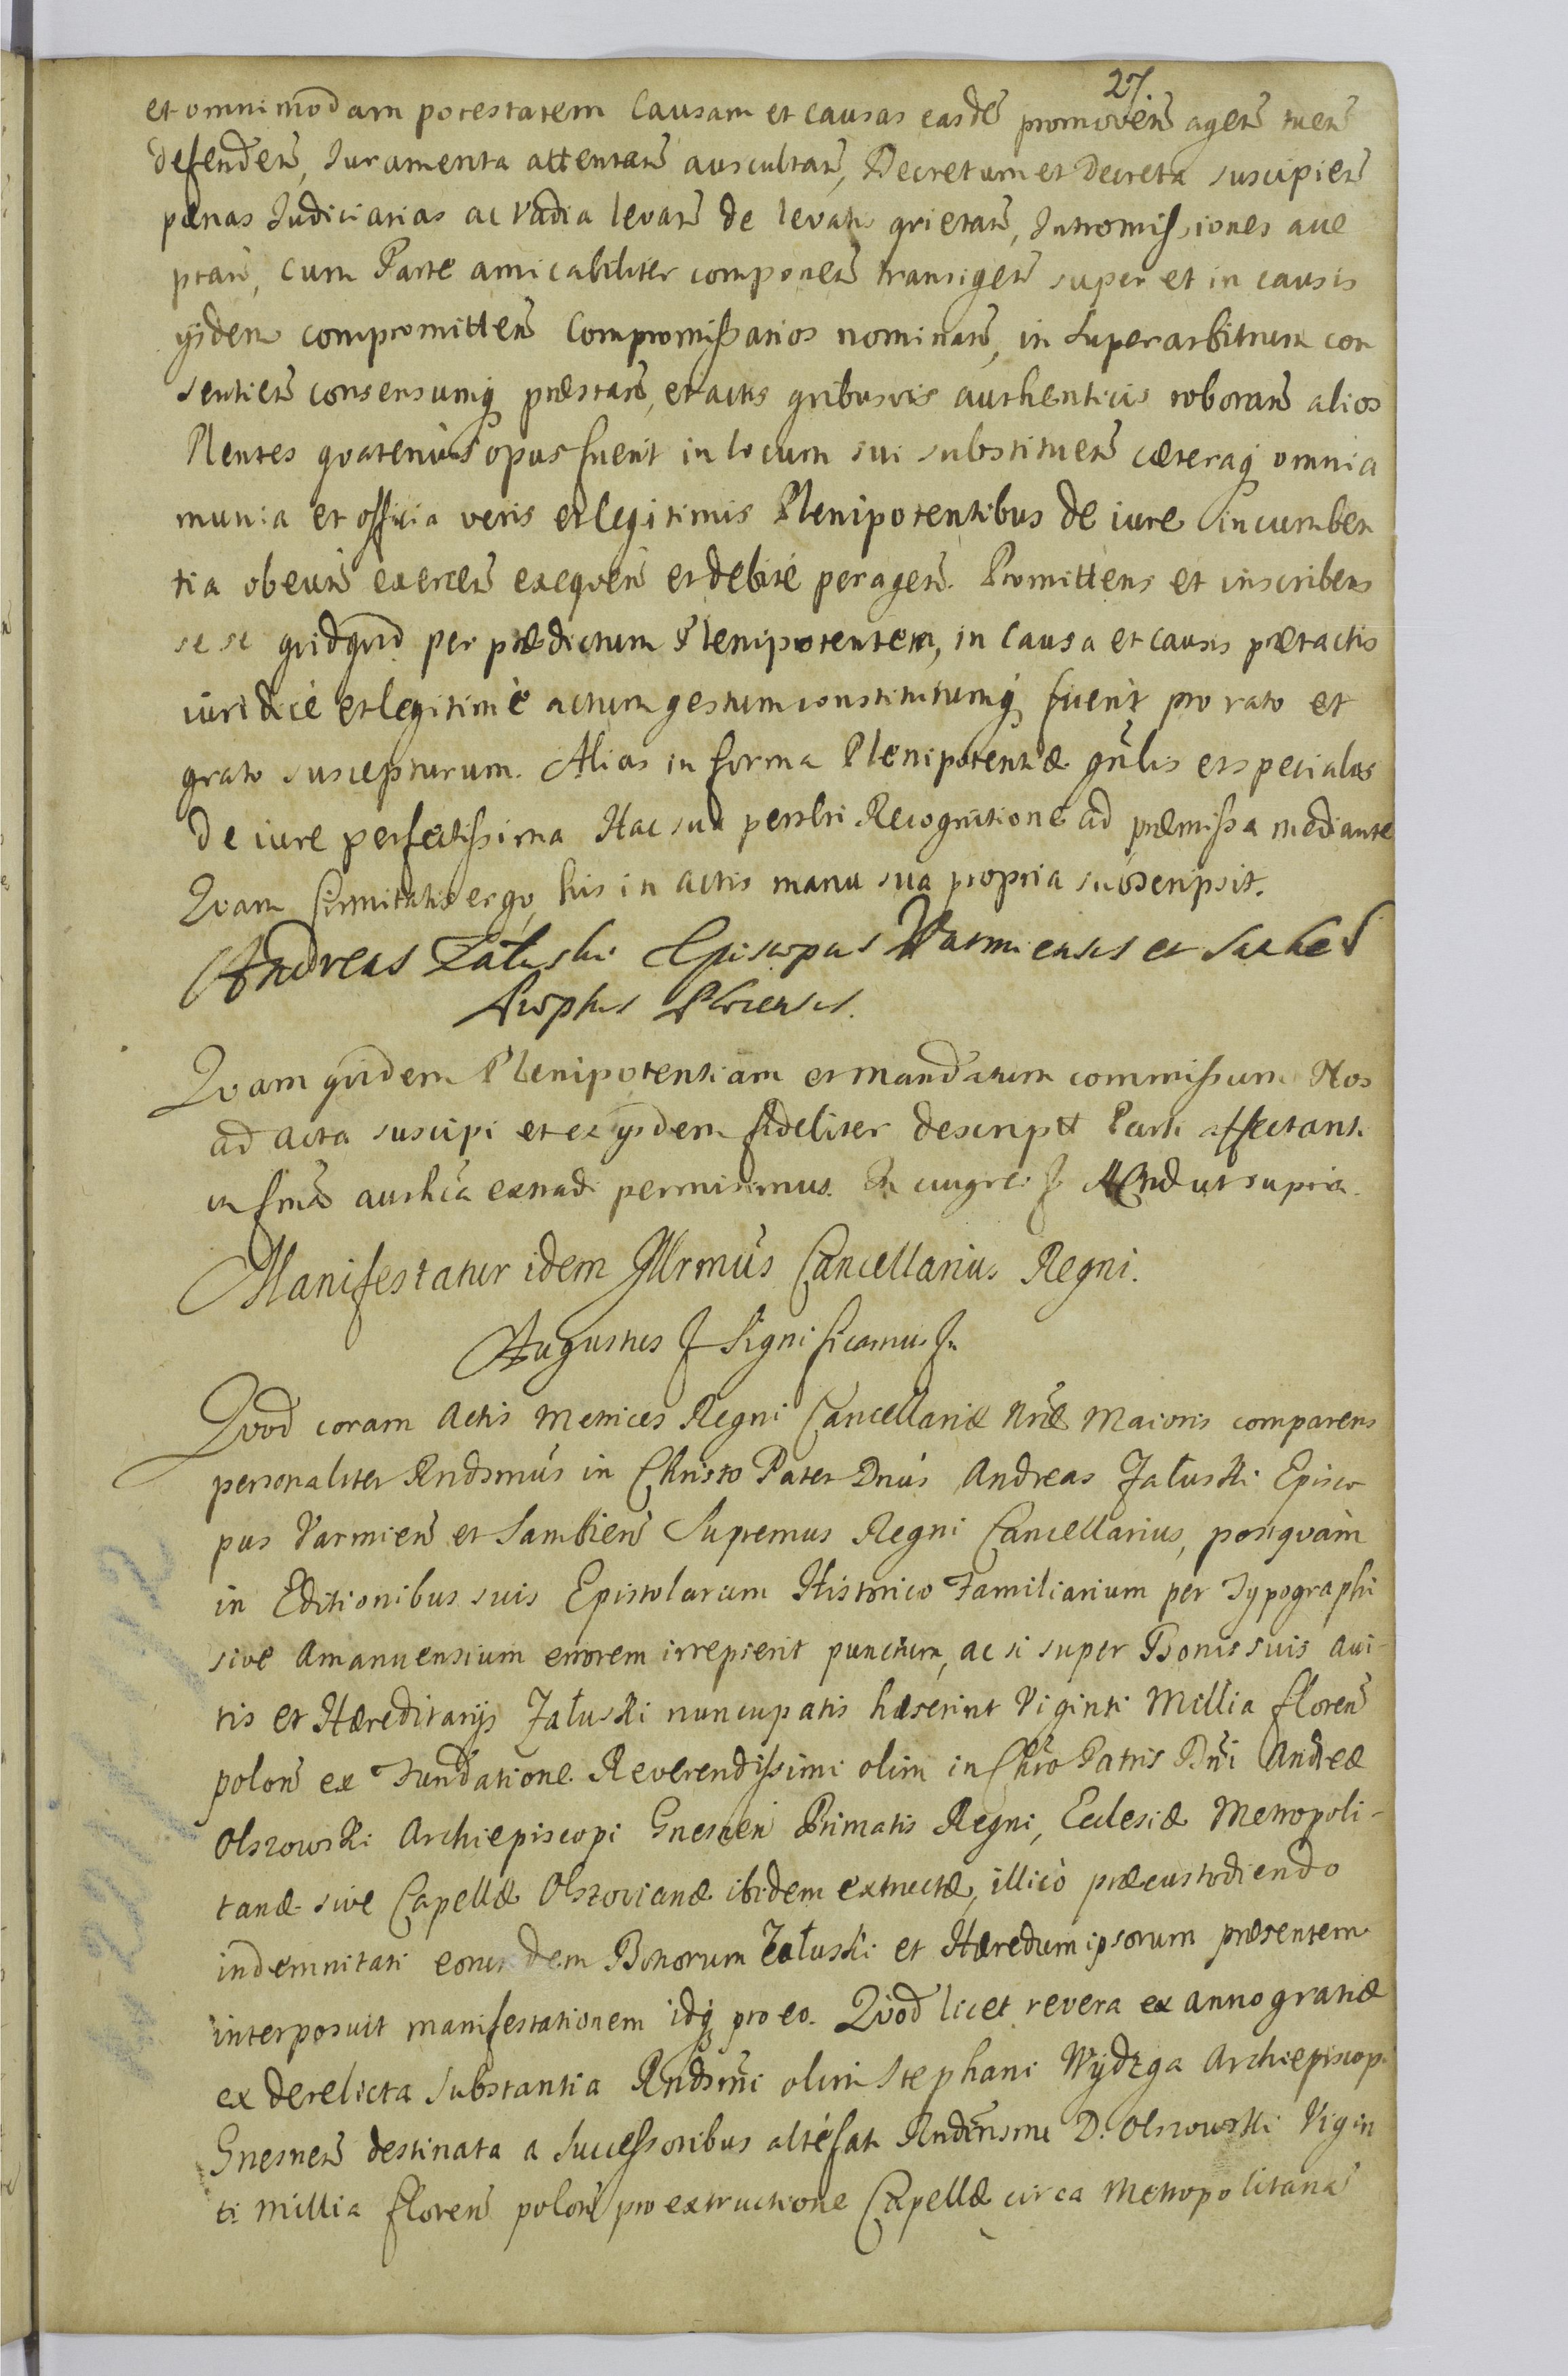 27.
et omnimodam potestatem Causam et causas easdē promovēn̄ agen̄ tuen̄
defenden̄, Juramenta attentan̄ auscultan̄, Decretum et Decreta suscipien̄
pænas Judiciarias ac vadia levan̄ de levatis qvietan̄, Intromissiones acce
ptan̄, cum Parte amicabiliter componen̄ transigen̄ super et in causis
ijsdem compromitten̄ Compromissarios nominan̄, in Superarbitrum con
sentien̄ consensumq́ præstan̄, et actis qvibusvis authenticis roboran̄ alios
Plentes qvatenus opus fuerit in locum sui substituen̄ cæteraq́ omnia
munia et officia veris et legitimis Plenipotentibus de iure incumben
tia obeun̄ exercen̄ exeqven̄ et debitè peragen̄. Promittens et inscribens
se se qvidqvid per prædictum Plenipotentem, in Causa et causis prætactis
iuridicè et legitimè actum gestum constitutumq́ fuerit pro rato et
grato suscepturum. Alias in forma Plenipotentiæ gn̄lis et specialis
de iure perfectissima Hac sua persn̄li Recognitione ad præmissa mediante
Qvam firmitatis ergo, his in actis manu sua propria subscripsit.
Andreas Załuski Episcopus Warmiensis et Sambiēs
Præptus Plocensis.
Qvam qvidem Plenipotentiam et mandatum commissum Nos
ad acta suscipi et ex ijsdem fideliter descriptt Parti affectanti
in formā authēa extradi permisimus. In cuius rei & Mnd ut supra.
Manifestatur idem Jllrmus Cancellarius Regni.
Augustus & Significamus &.
Qvod coram Actis Metrices Regni Cancellariæ Nr̄æ Maioris comparens
personaliter Rndsmus in Christo Pater Dnūs Andreas Załuski Episco
pus Varmien̄ et Sambien̄ Supremus Regni Cancellarius, postqvam
in Editionibus suis Epistolarum Historico Familiarium per Typographi
sive Amanuensium errorem irrepserit punctum, ac si super Bonis suis avi-
tis et Hæreditarijs Załuski nuncupatis hæserint Viginti Millia floren̄
polon̄ ex Fundatione Reverendissimi olim in Chrō Patris Dn̄i Andreæ
Olszowski Archiepiscopi Gnesnen̄ Primatis Regni, Ecclesiæ Metropoli-
tanæ sive Capellæ Olszovianæ ibidem extructæ, illicò præcustodiendo
indemnitati eorundem Bonorum Załuski et Hæredum ipsorum præsentem
interposuit manifestationem idq́ pro eo. Qvod licet revera ex anno gratiæ
ex derelicta Substantia Rndsmi olim Stephani Wydzga Archiepiscopi
Gnesnen̄ destinata a Successoribus altefati Rndensmi D. Olszowski Vigin
ti Millia floren̄ polon̄ pro extructione Capellæ circa Metropolitanā